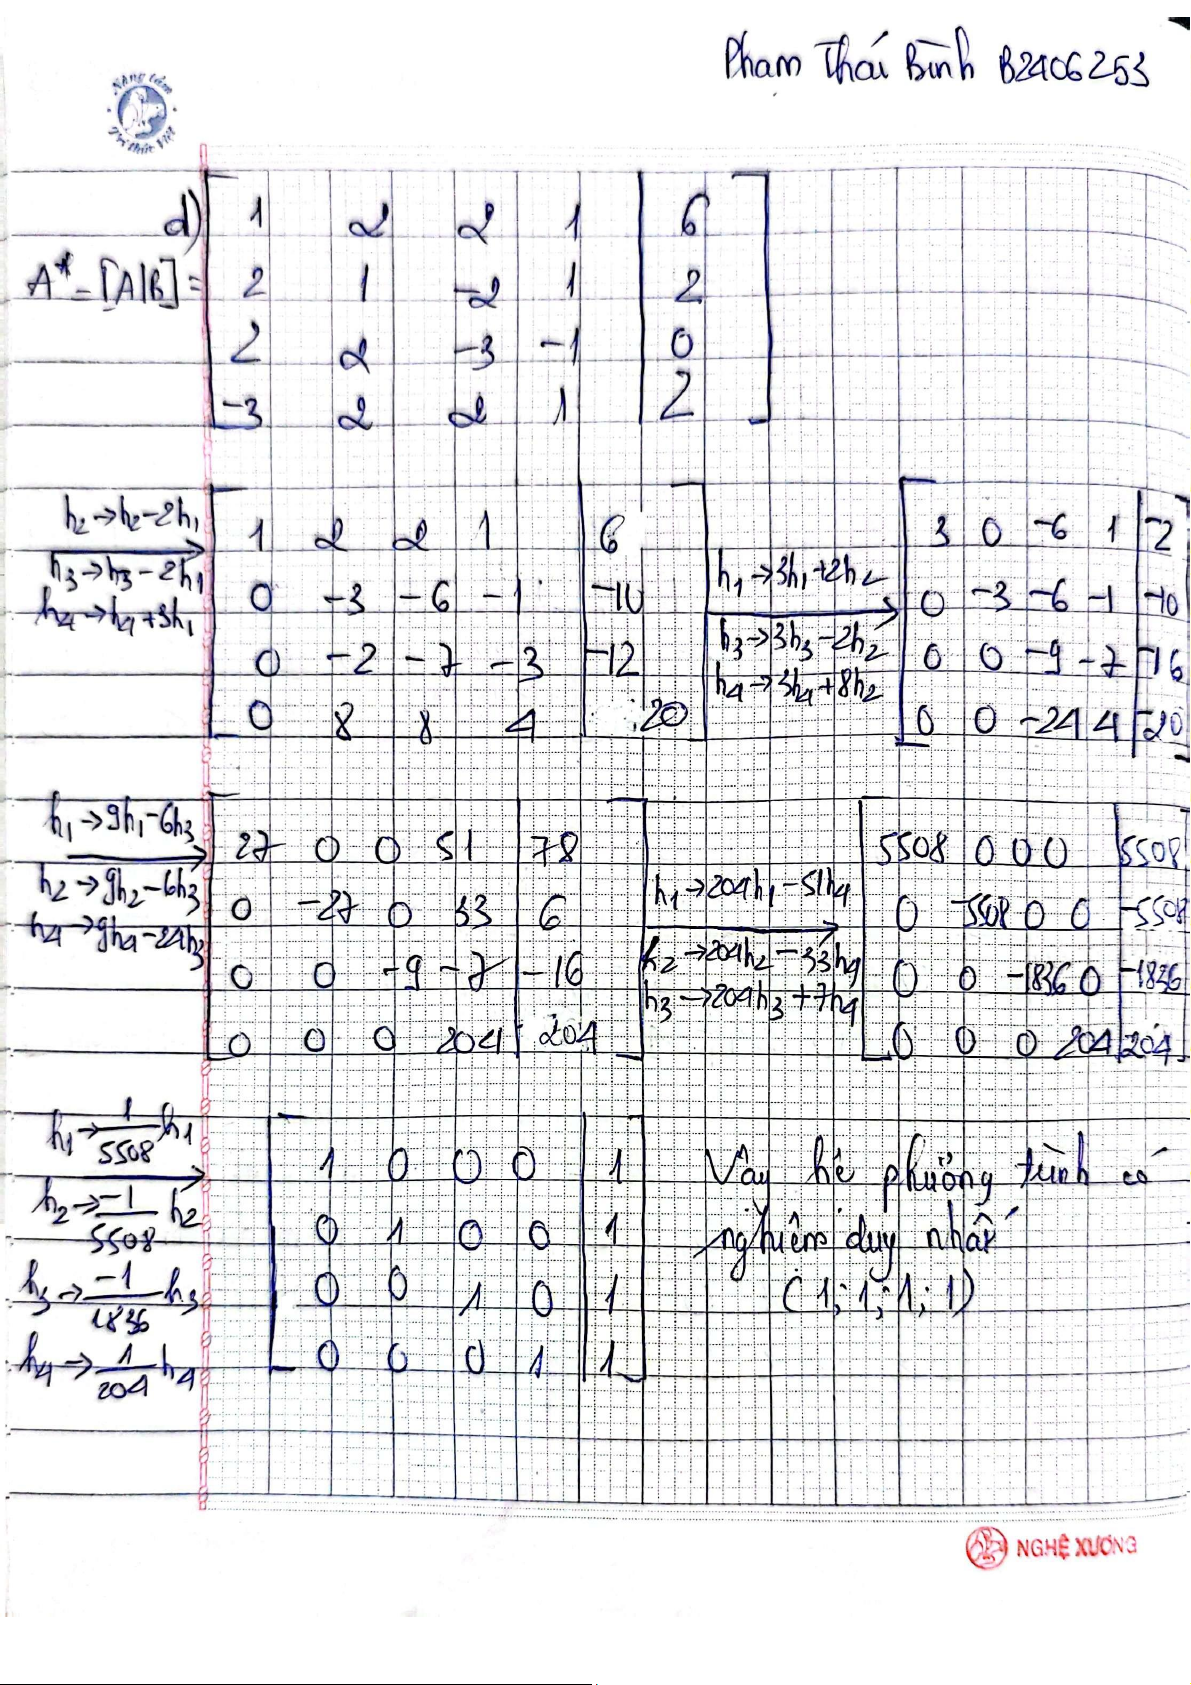 Phạm Thái Bình B2406253
Nâng tầm
Tri thức Việt
d)
A* = [A|B] =
1 2 2 1 | 6
2 1 -2 1 | 2
2 2 -3 -1 | 0
-3 2 2 1 | 2
h2 → h2 - 2h1
h3 → h3 - 2h1
h4 → h4 + 3h1
1 2 2 1 | 6
0 -3 -6 -1 | -10
0 -2 -7 -3 | -12
0 8 8 4 | 20
h1 → 3h1 + 2h2
h3 → 3h3 - 2h2
h4 → 3h4 + 8h2
3 0 -6 1 | -2
0 -3 -6 -1 | -10
0 0 -9 -7 | -16
0 0 -24 4 | -20
h1 → 9h1 - 6h3
h2 → 9h2 - 6h3
h4 → 9h4 - 24h3
27 0 0 51 | 78
0 -27 0 33 | 6
0 0 -9 -7 | -16
0 0 0 204 | 204
h1 → 204h1 - 51h4
h2 → 204h2 - 33h4
h3 → 204h3 + 7h4
5508 0 0 0 | 5508
0 -5508 0 0 | -5508
0 0 -1836 0 | -1836
0 0 0 204 | 204
h1 → 1/5508 h1
h2 → -1/5508 h2
h3 → -1/1836 h3
h4 → 1/204 h4
1 0 0 0 | 1
0 1 0 0 | 1
0 0 1 0 | 1
0 0 0 1 | 1
Vậy hệ phương trình có
nghiệm duy nhất
(1; 1; 1; 1)
NGHỆ XƯƠNG